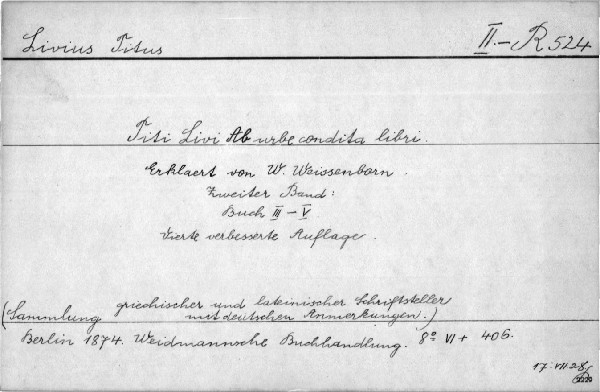 Livius Titus II.-R 524
Titi Livi Ab urbe condita libri.
Erklaert von W. Weissenborn.
Zweiter Band:
Buch III-V
Vierte verbesserte Auflage.
(Sammlung griechischer und lateinischer Schriftsteller
mit deutschen Anmerkungen.)
Berlin 1874. Weidmannsche Buchhandlung. 8° VI + 406.
17. VII 28.